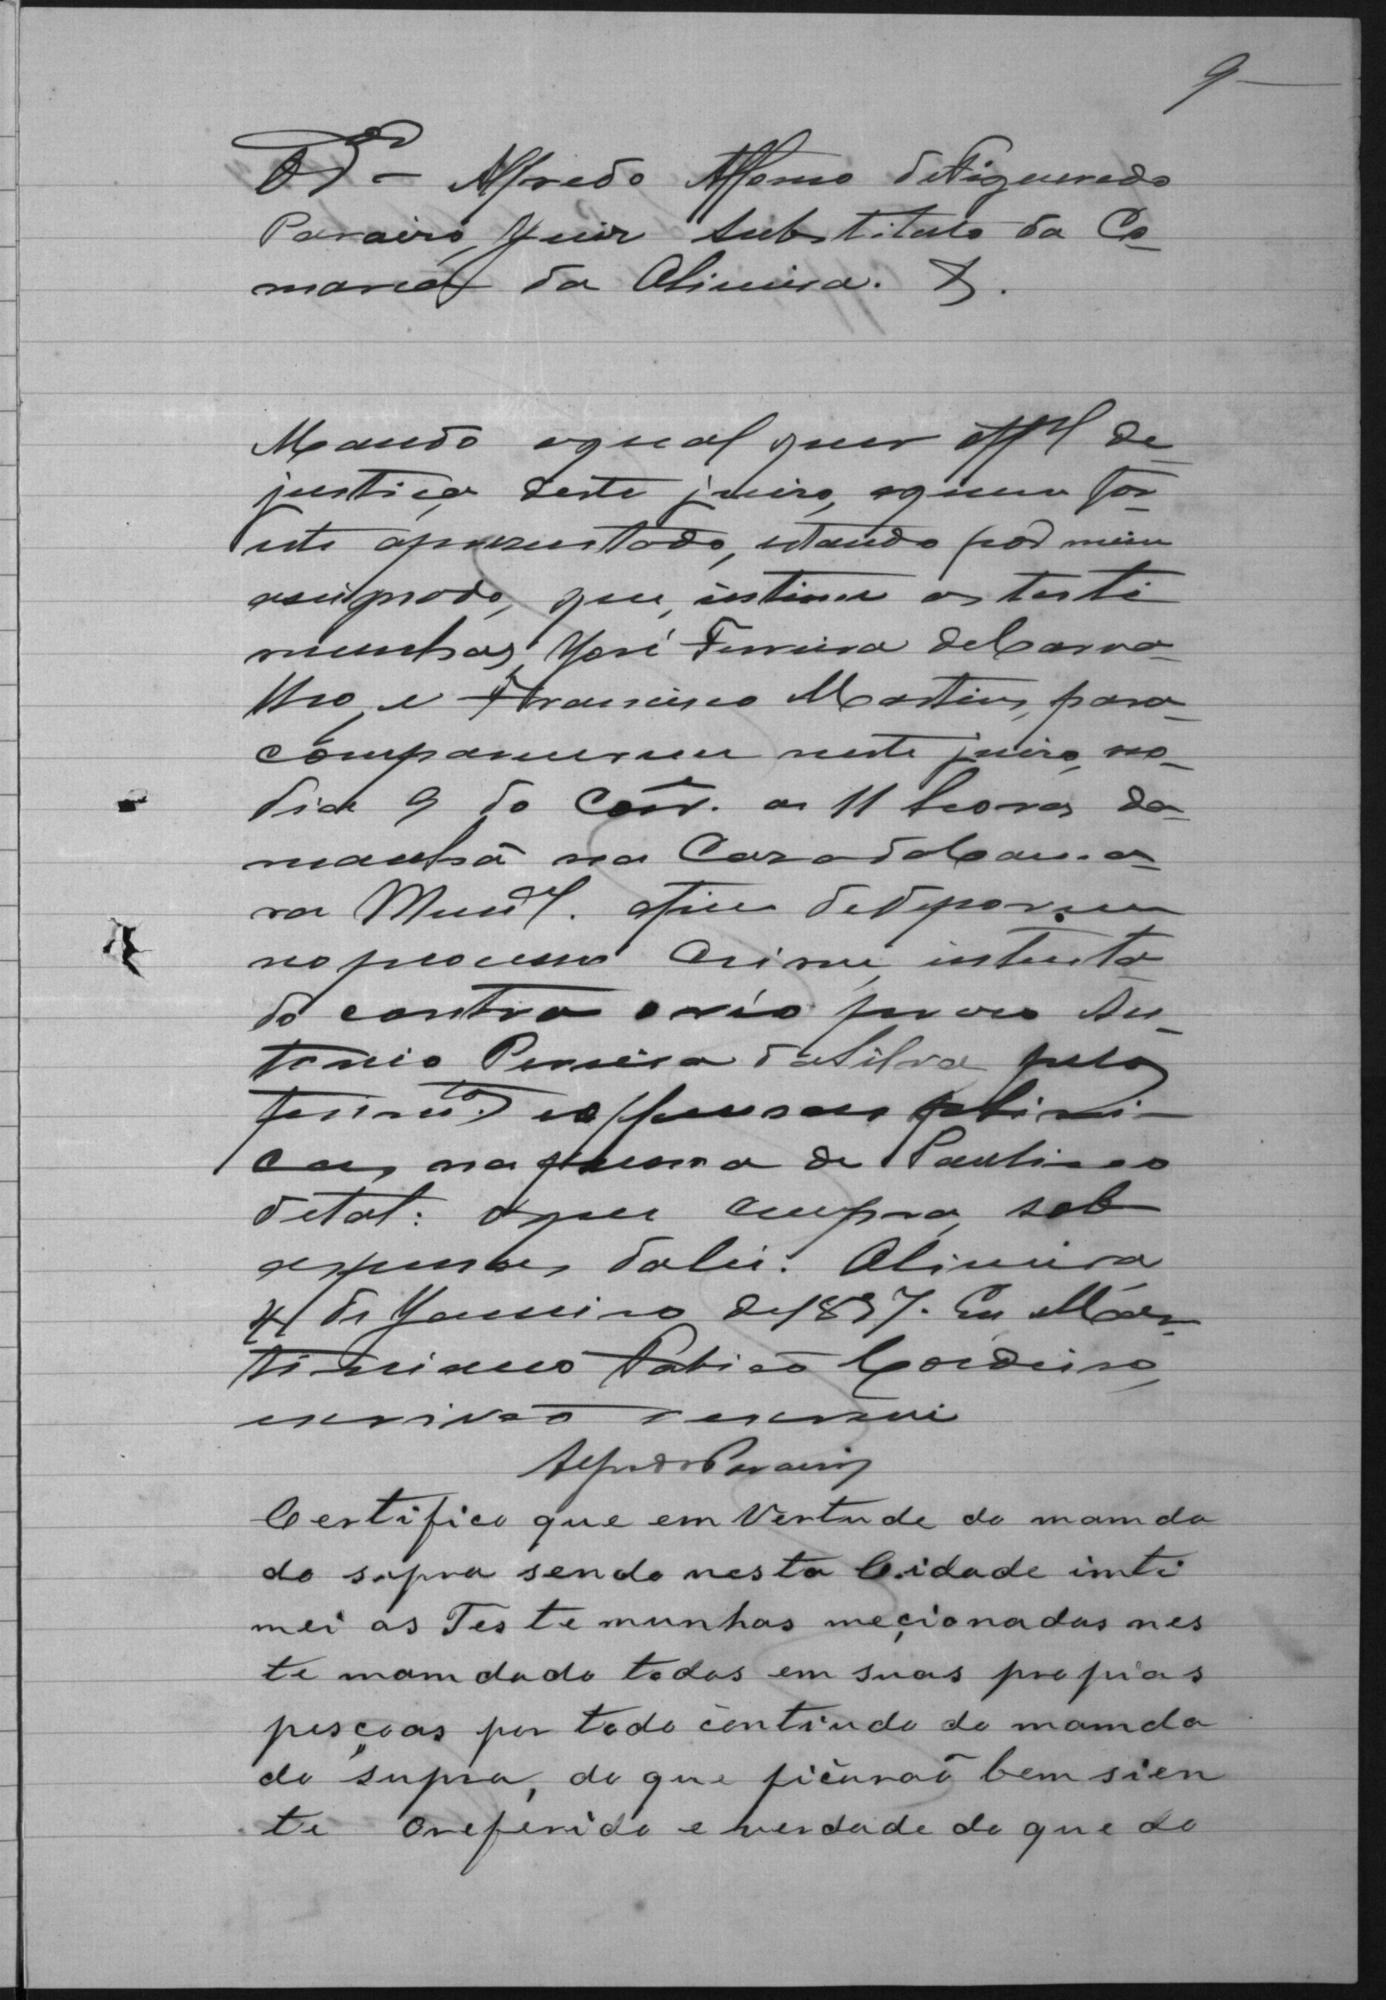 9
O Dr. Alfredo Affonso de Figueredo
Paraiso, Juiz Substituto da Co-
marca da Olimeira. &.
Mando aqual quer Offal de
justiça deste juizo, aquem for
este aprezentado, estando por mim
assignado, que, intime as teste
munhas, José Ferreira de Carva-
lho, e Francisco Martins, para
comparecerem neste juizo, no
dia 9 do Corr. as 11 horas da
manhã na Caza da Cama-
ra Munal. afim de deporem
no processo Crime, intenta
do contra o réo prezo An-
tonio Pereira da Silva pelos
ferimtos. e offensas phizi-
cas, na pessoa de Paulino
de tal: oque cumpra, sob
as penas, da lei. Olimeira
4 de Janeiro de 1897. Eu Mar-
timiano Cordeiro,
escrivão o escrevi
Alfredo Paraiso
Certifico que em Vertude do mamda
do supra sendo nesta Cidade imti
mei as Tes te munhas meçionadas nes
te mamdado todas em suas propias
pesçoas por todo contiudo do mamda
do supra, do que ficarão bem sien
te O referido e verdade do que do